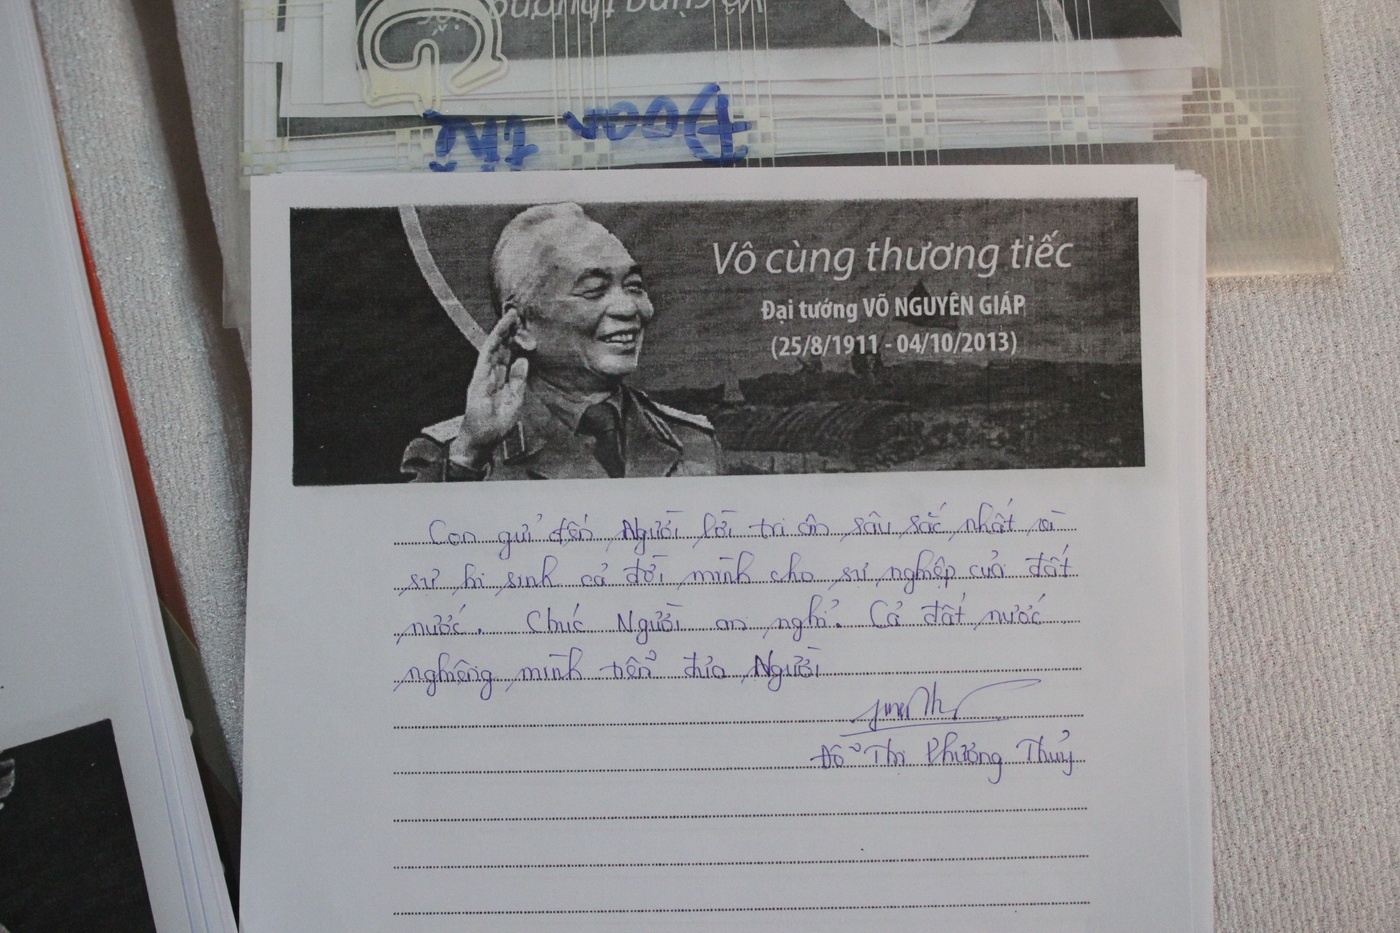 Vô cùng thương tiếc
Đoàn
thể
Vô cùng thương tiếc
Đại tướng VÕ NGUYÊN GIÁP
(25/8/1911 - 04/10/2013)
Con gửi đến Người lời tri ân sâu sắc nhất vì
sự hi sinh cả đời mình cho sự nghiệp của đất
nước. Chúc Người an nghỉ. Cả đất nước
nghiêng mình tiễn đưa Người
Đỗ Thị Phương Thuỷ